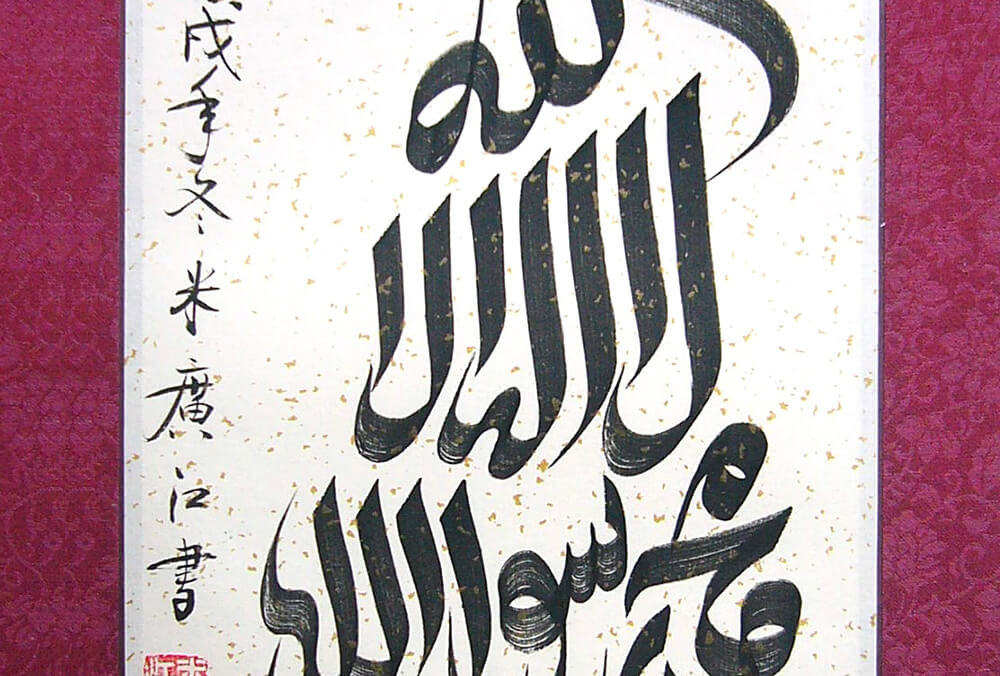 الله
لا اله الا
محمد رسول الله
戌年冬米廣江書